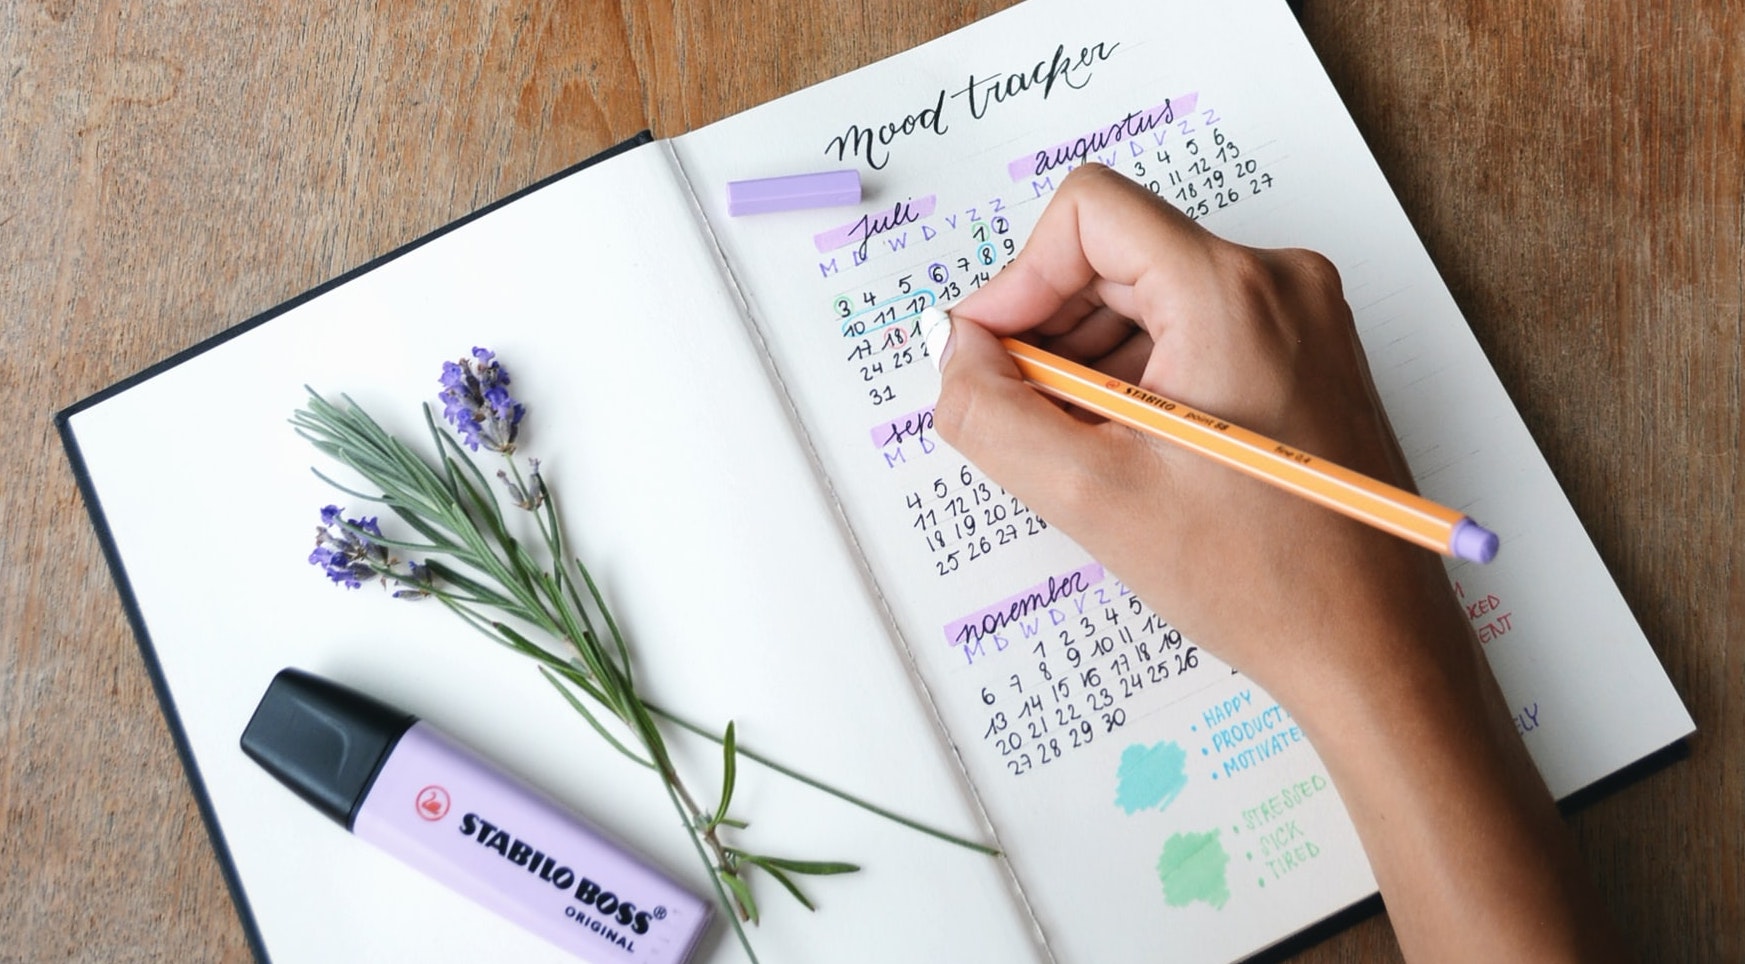 Mood tracker
augustus
M W D V Z Z
3 4 5 6
10 11 12 13
18 19 20
25 26 27
juli
M D W D V Z Z
1 2
3 4 5 6 7 8 9
10 11 12 13 14
17 18
24 25
31
M D
4 5 6
11 12 13
18 19 20
25 26 27 28
november
M D W D V Z Z
1 2 3 4 5
6 7 8 9 10 11 12
13 14 15 16 17 18 19
20 21 22 23 24 25 26
27 28 29 30
• HAPPY
• MOTIVATED
• STRESSED
• SICK
• TIRED
STABILO point 88 fine 0,4
STABILO BOSS®
ORIGINAL